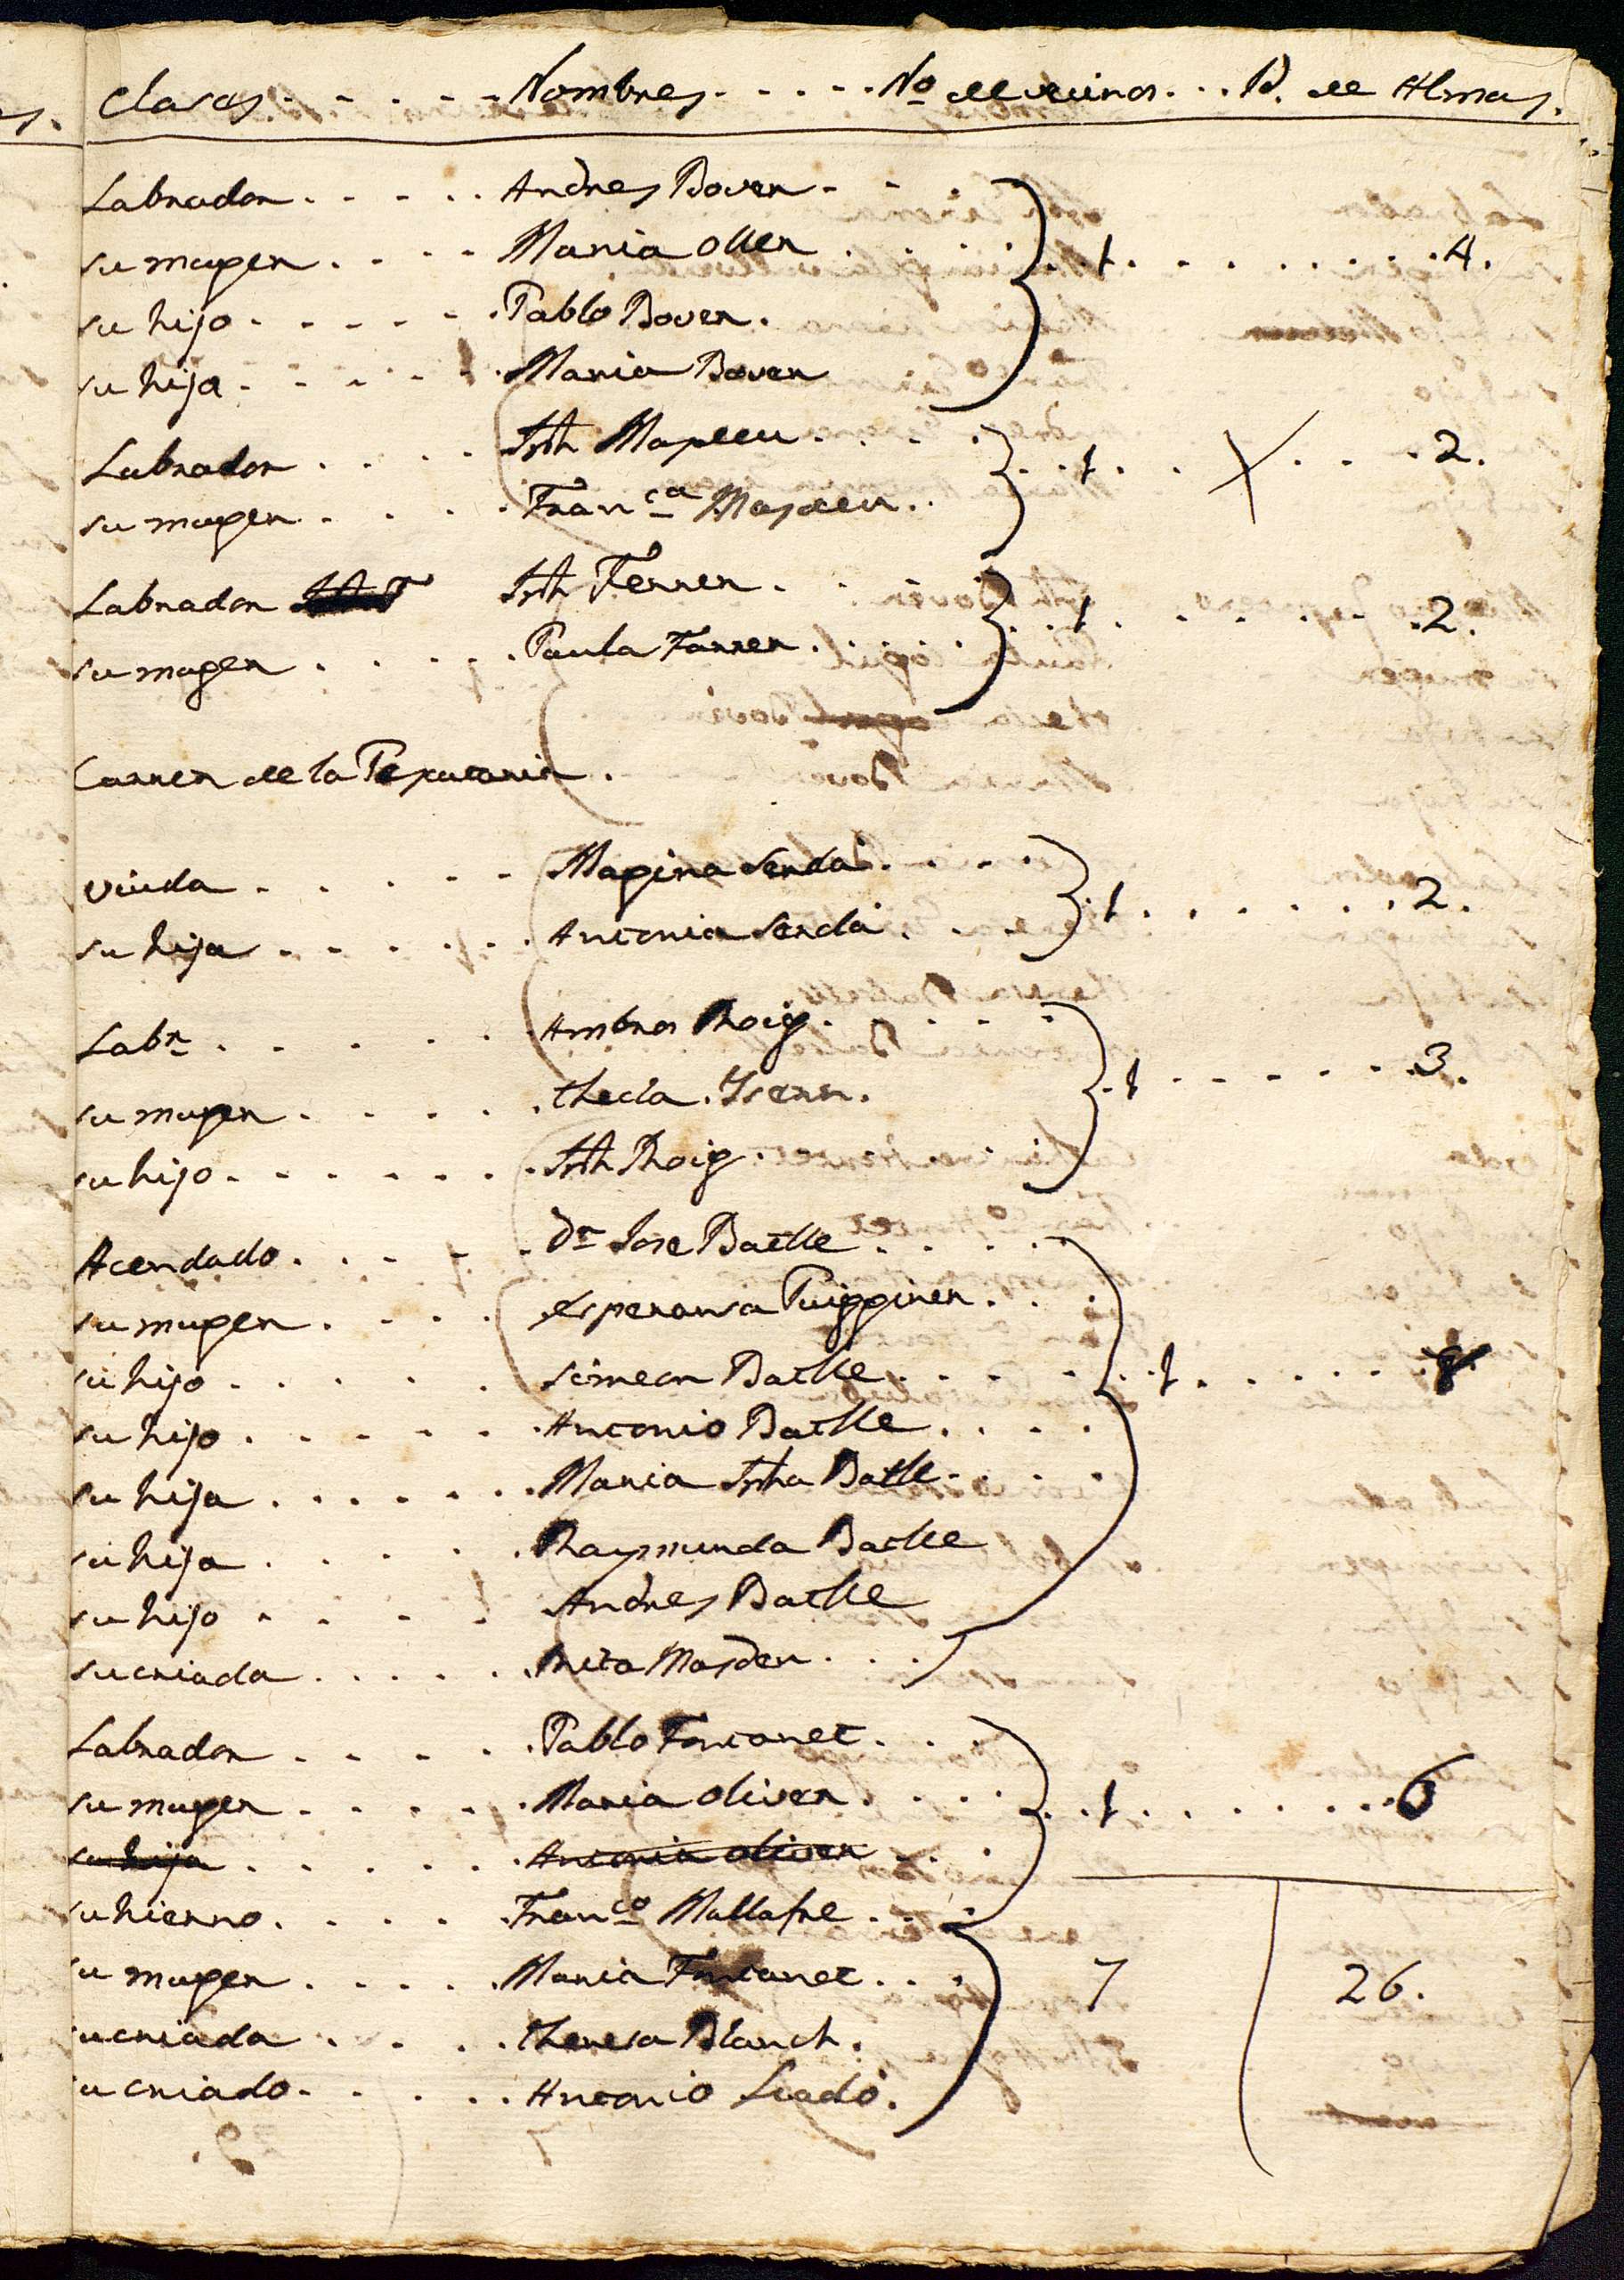 Clases - - - - - Nombres - - - - Nº de vecinos - - - N. de Almas.
Labrador - - - - - Andres Bover - - -
su muger - - - - Maria Oller - - - - 1 - - - - - - - 4.
su hijo - - - - - Pablo Bover.
su hija - - - - - Maria Bover
Labrador - - - - Jph Masdeu - - - - 1 - - X - - - 2.
su muger - - - - Franca Masdeu - -
Labrador Jph Ferrer - - - - 1 - - - - - - 2.
su muger - - - - Paula Farrer.
Carrer de la
viuda - - - - - Magina Serda - - - -
su hija - - - - - Antonia Serdá - - - 1 - - - - - - 2.
Labr - - - - - Ambros Roig - - - -
su muger - - - - - thecla Isern. - 1 - - - - - - 3.
su hijo - - - - - - Jph Roig.
Acendado - - - - - Dn Jose Batlle - - - -
su muger - - - - esperansa Puigginer - - -
su hijo - - - - - simeon Batlle - - - - - 1 - - - - - 8
su hijo - - - - - Antonio Batlle - - - -
su hija - - - - - - Maria Jpha Batlle - - -
su hija - - - - - Raymunda Batlle
su hijo - - - - Andres Batlle
su criada - - - - - Rita Masdeu - - -
Labrador - - - - - Pablo Fontanet - - -
su muger - - - - - Maria Oliver - - - - 1 - - - - - - 6
su hija - - - - - Antonia Oliver - -
su hierno - - - - - Franco Mallafre - - -
su muger - - - - - Maria Fontanet - - - 7 26.
su criada - - - - theresa Blanch.
su criado - - - - - Antonio Lladó.